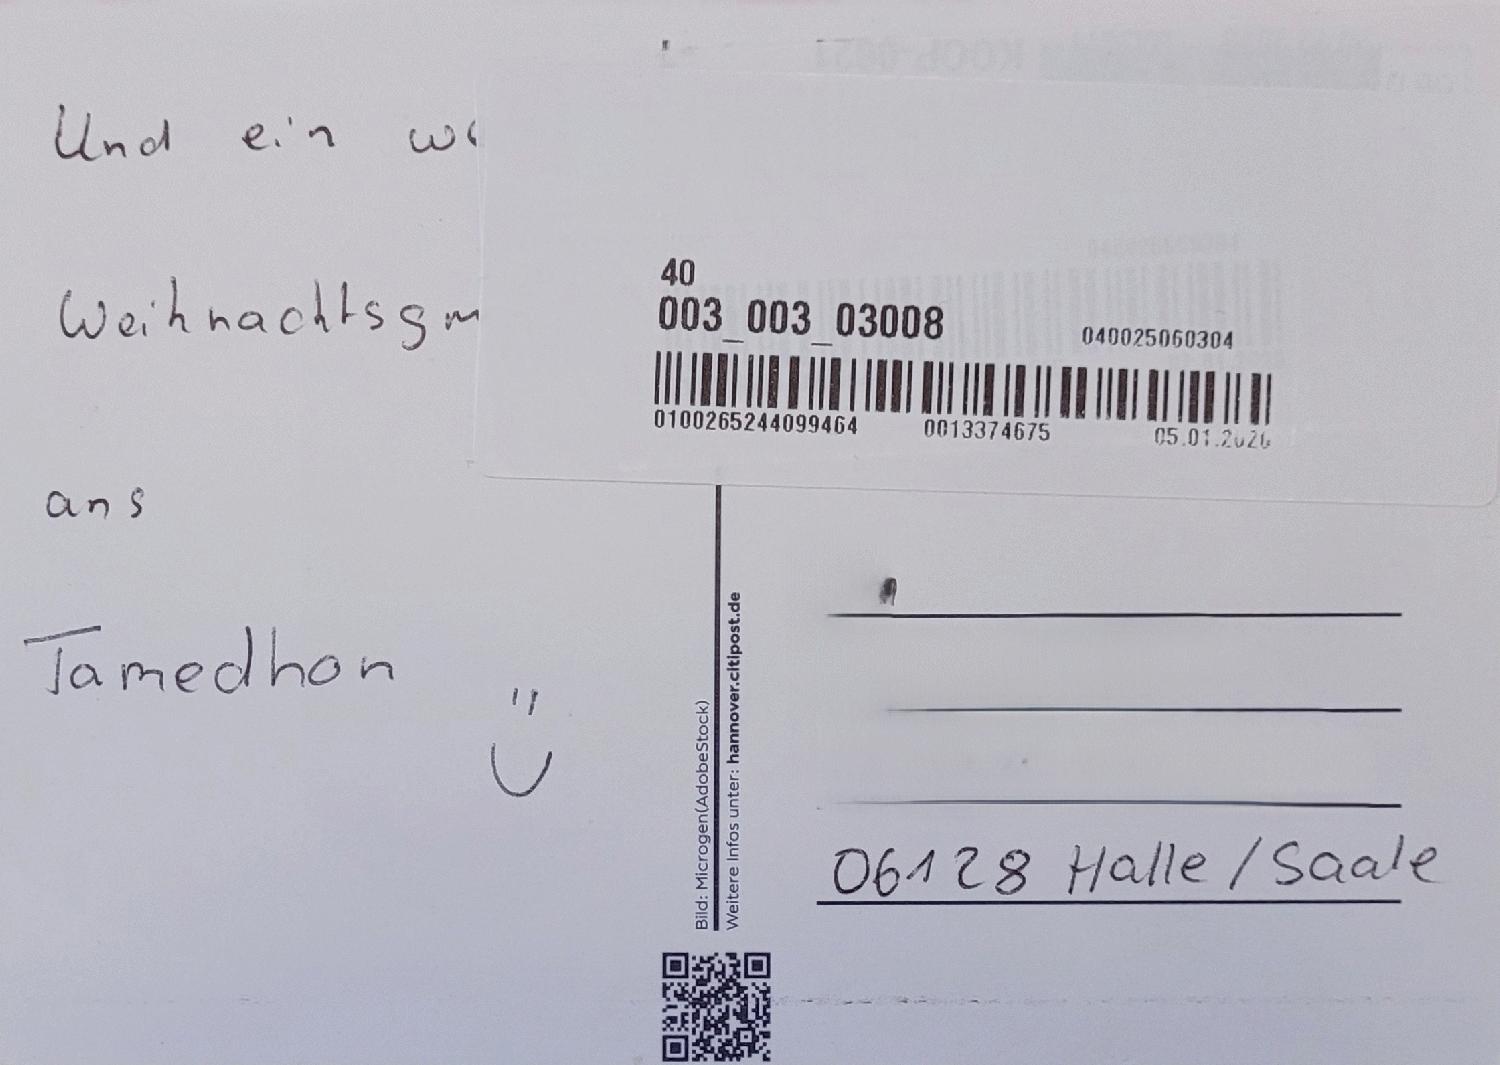 Und ein
Weihnachtsgm
ans
Tamedhon
40
003_003_03008
040025060304
0100265244099464 0013374675 05.01.2026
Bild: Microgen(AdobeStock)
Weitere Infos unter: hannover.citipost.de
06128 Halle/Saale